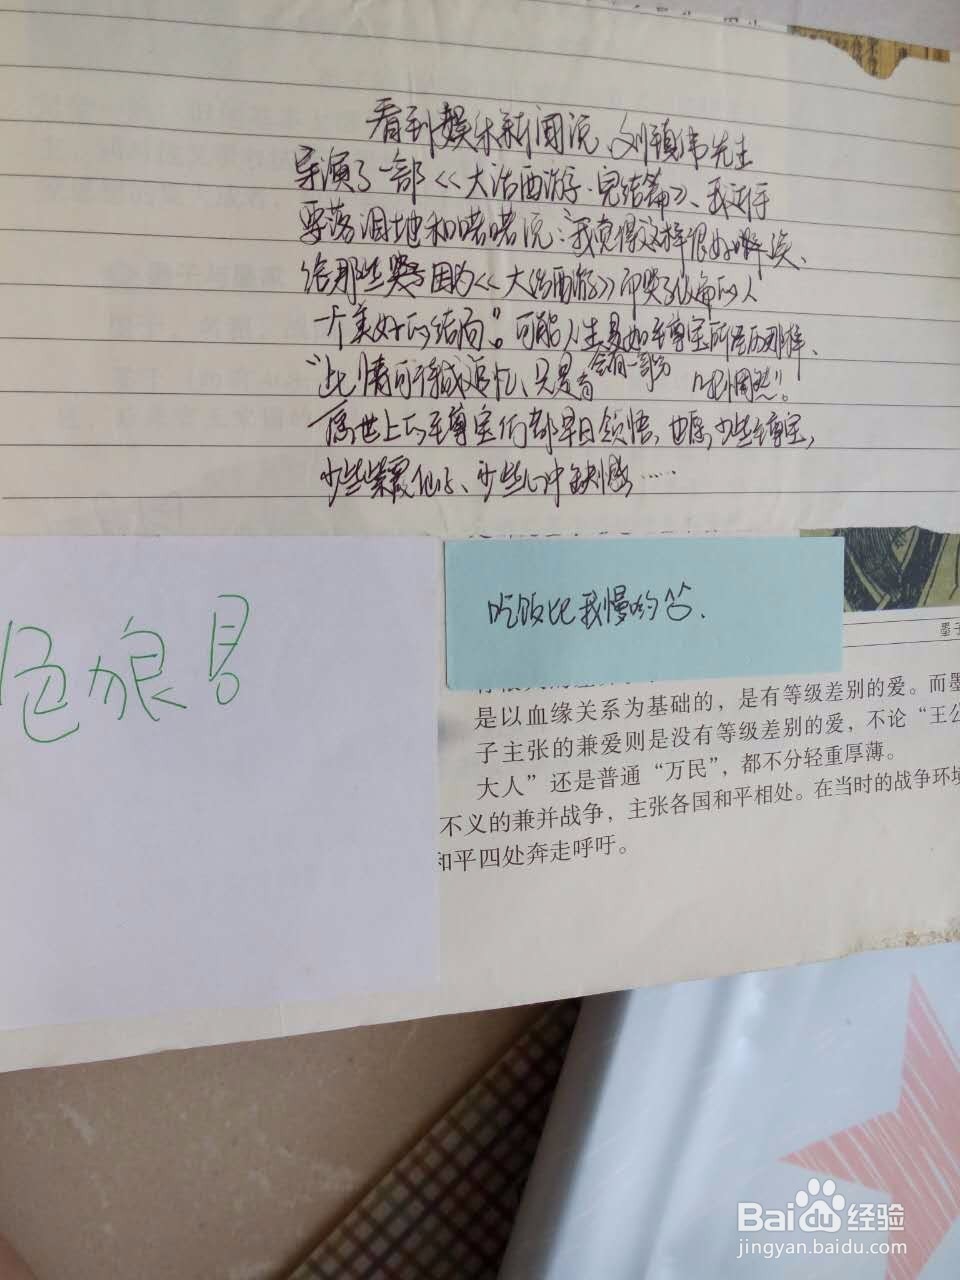 看到娱乐新闻说、刘镇伟先生
导演了一部《大话西游·完结篇》、我近乎
要落泪地和喏喏说:“我觉得这样很好啊唉、
给那些哭于因为《大话西游》而哭的人
一个美好的结局”。可能人生是如至尊宝所经历那样、
“此情可待成追忆、只是 惘然”。
愿世上的至尊宝们都早日领悟,也愿少些至尊宝,
少些紫霞仙子、少些心中缺憾……
色狼
吃饭比我慢的
墨子
是以血缘关系为基础的,是有等级差别的爱。而墨
子主张的兼爱则是没有等级差别的爱,不论“王公
大人”还是普通“万民”,都不分轻重厚薄。
不义的兼并战争,主张各国和平相处。在当时的战争环境
和平四处奔走呼吁。
Baidu经验
jingyan.baidu.com